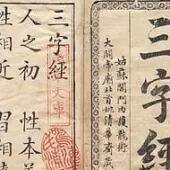 三字經
姑蘇閶門內護龍街
大關帝廟北首姚清華齋
三字經
人之初 性本善
性相近 習相